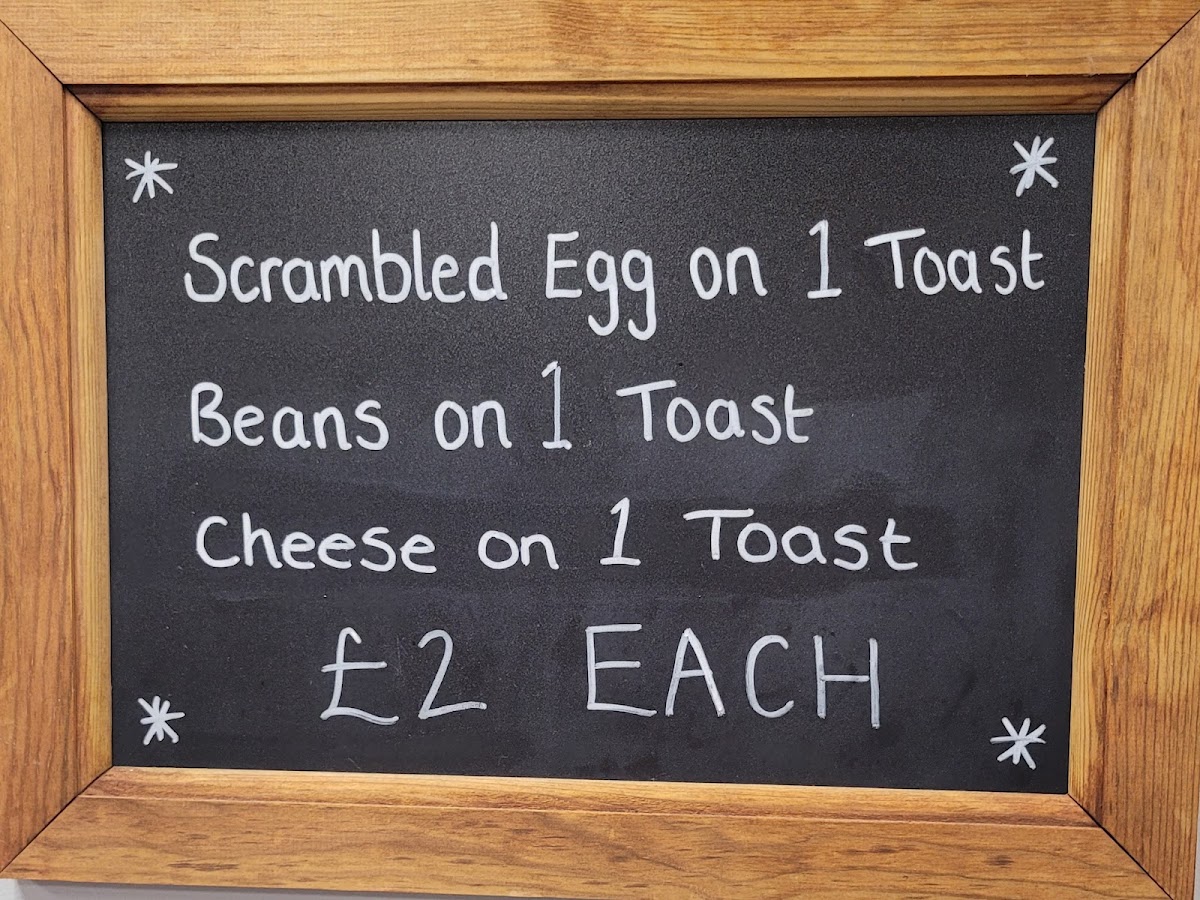 Scrambled Egg on 1 Toast
Beans on 1 Toast
Cheese on 1 Toast
£2 EACH